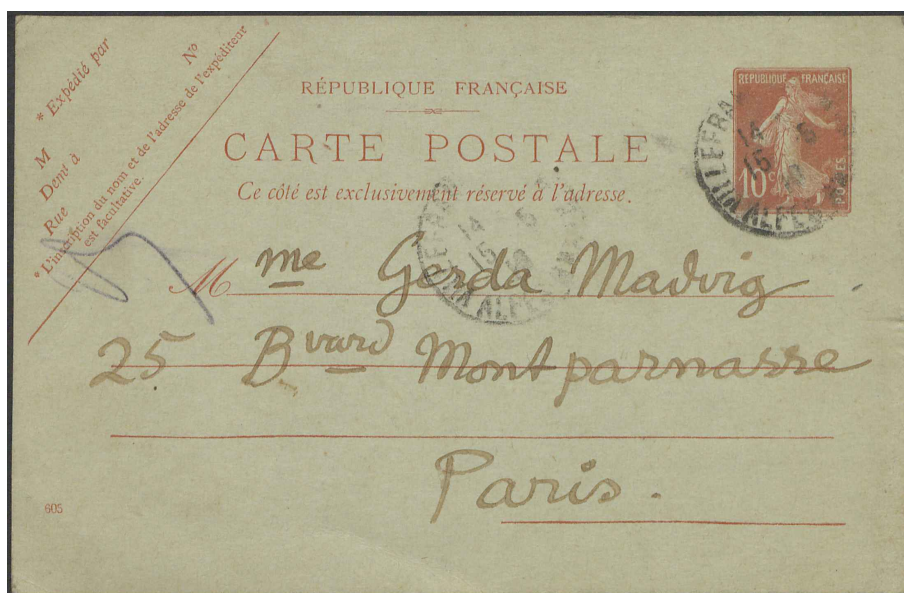 * Expédié par
M
Nº
Demt à
Rue
* L'inscription du nom et de l'adresse de l'expéditeur
est facultative.
RÉPUBLIQUE FRANÇAISE
CARTE POSTALE
Ce côté est exclusivement réservé à l'adresse.
RÉPUBLIQUE FRANÇAISE
10c
POSTES
14 5
15
14 5
15
M me Gerda Madvig
25 Bvard Montparnasse
Paris.
605